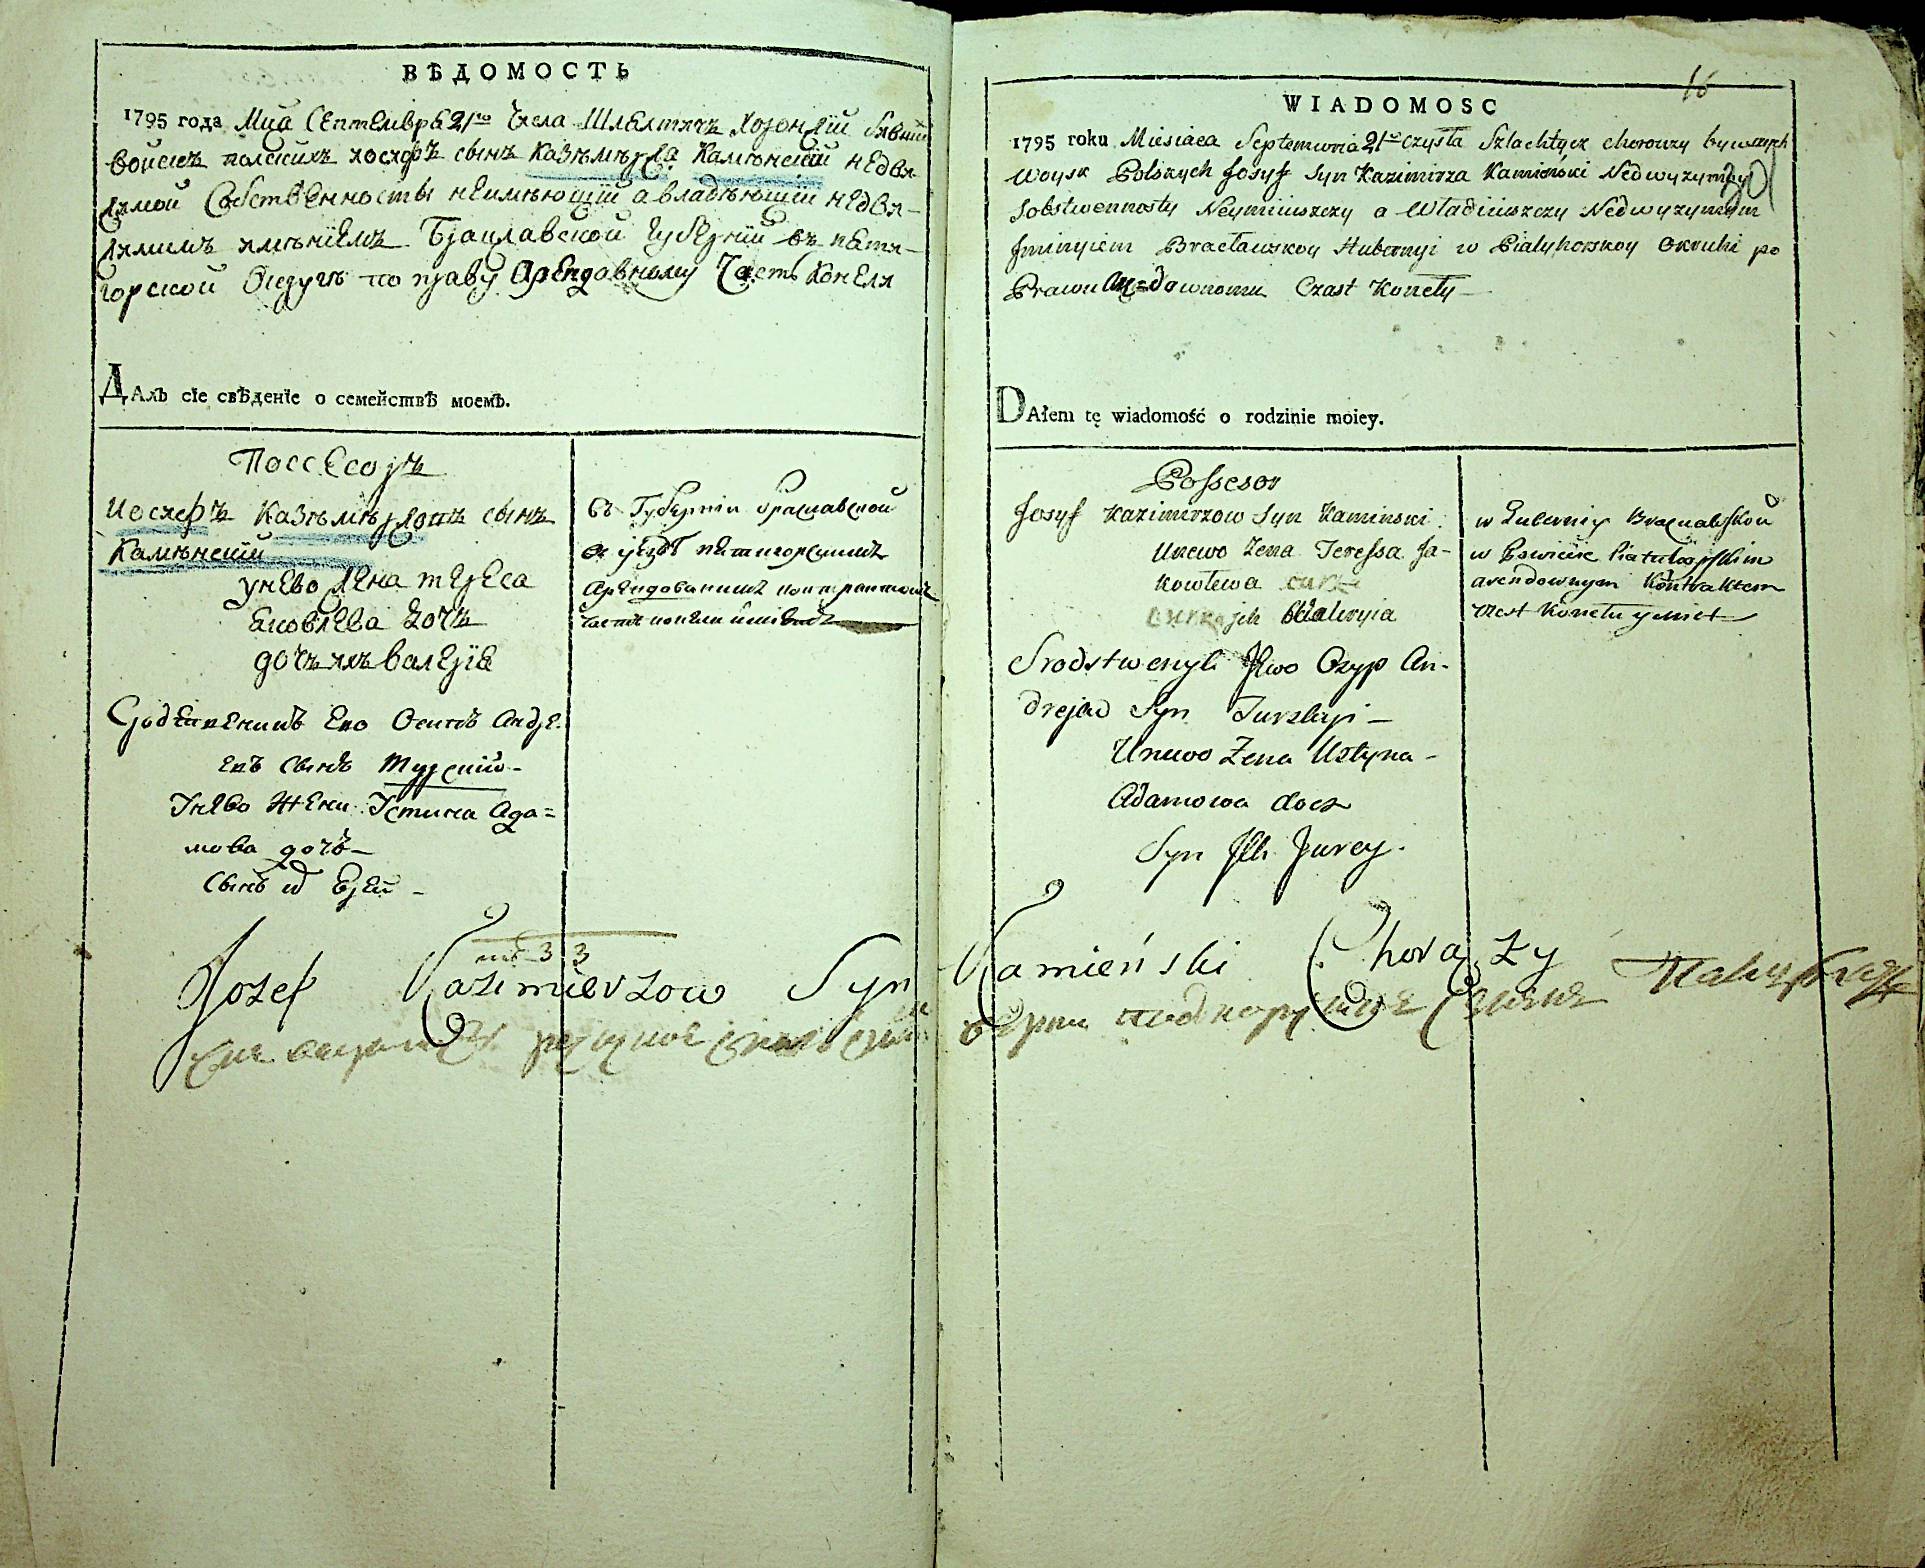 ВѢДОМОСТЬ
1795 года Мца Септемвра 21го Числа Шляхтичъ Хоронжій бывшій
войскъ полскихъ Иосифъ сынъ Казѣмѣра Камѣнскій недви
жимой Собственносты неимѣющій а владѣющій недви-
жимимъ имѣніемъ Брацлавской Губерній въ пяти-
горской Округѣ по праву Арендавному Часть Конеля
ДАлъ сіе свѣденіе о семействѣ моемъ.
Поссесоръ
Иосифъ Казѣмѣровъ сынъ
Камѣнскій
унево Жена тереса
Яковлева дочъ
дочъ ихъ валерія
Сродственикъ Ево Осипъ Андре
евъ сынъ Турскій-
Унево Жена Устина Ада=
мова дочъ-
Сынъ их Юрей -
въ Губерніи брацлавской
в уездѣ пятигорскимъ
Арендованимъ контрактомъ
часть конели
16
WIADOMOSC
1795 roku Miesiaca Septemvria 21go czysła Szlachtycz chorouzy bywszych
Woysk Polskych Josyf Syn Kazimirza Kamieński Nedwyzymoy
Sobstwennosty Neymiiuszczy a Władiiuszczy Nedwyzymym
Jminyiem Bracławskoy Hubernyi w Piatyhorskoy Okruhi po
Prawu Arendownomu Czast Konely -
DAłem tę wiadomość o rodzinie moiey.
Possesor
Josyf Kazimirzow Syn Kaminski
Unewo Zena Teressa Ja-
kowlewa
jch Waleryia
Srodstwenyk Jewo Ozyp An-
drejew Syn Turskyi -
Unewo Zena Ustyna -
Adamowa docz
Syn Jch Jurey.
w Guberniy Bracławskoy
w Powicie Piatuhorskim
arendownym Kontraktem
czest Konely
33
Jozef Kazimierzow Syn Kamieński Chorąży